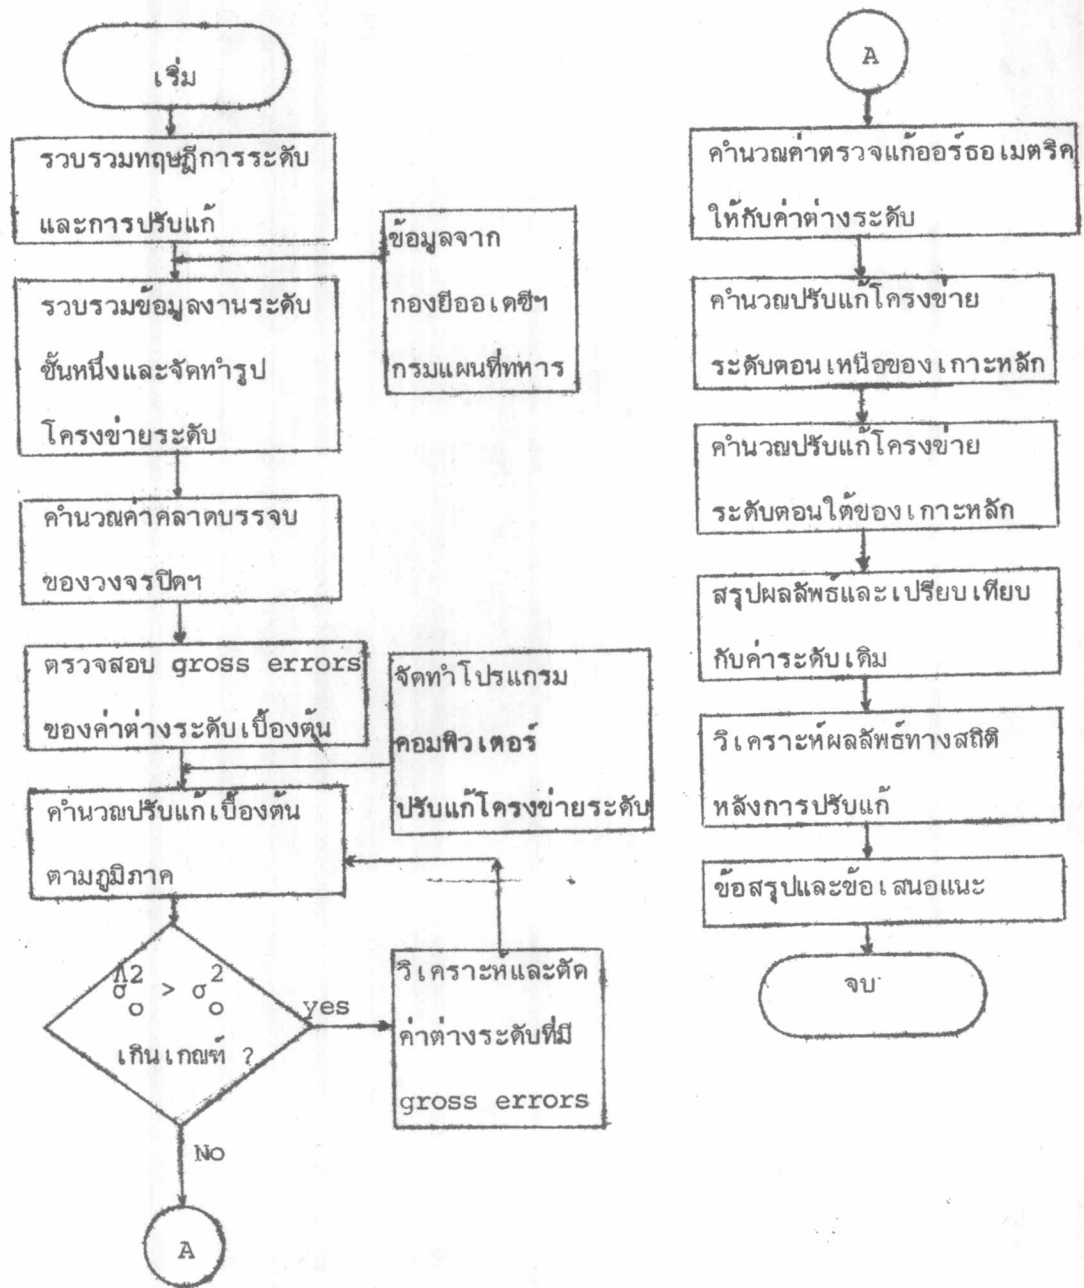 เริ่ม
รวบรวมทฤษฎีการระดับ
และการปรับแก้
ข้อมูลจาก
กองยีออเดซีฯ
กรมแผนที่ทหาร
รวบรวมข้อมูลงานระดับ
ชั้นหนึ่งและจัดทำรูป
โครงข่ายระดับ
คำนวณค่าคลาดบรรจบ
ของวงจรปิดฯ
ตรวจสอบ gross errors
ของค่าต่างระดับเบื้องต้น
จัดทำโปรแกรม
คอมพิวเตอร์
ปรับแก้โครงข่ายระดับ
คำนวณปรับแก้เบื้องต้น
ตามภูมิภาค
σ̂₀² > σ₀²
เกินเกณฑ์ ?
yes
วิเคราะห์และตัด
ค่าต่างระดับที่มี
gross errors
No
A
A
คำนวณค่าตรวจแก้ออร์ธอเมตริค
ให้กับค่าต่างระดับ
คำนวณปรับแก้โครงข่าย
ระดับตอนเหนือของเกาะหลัก
คำนวณปรับแก้โครงข่าย
ระดับตอนใต้ของเกาะหลัก
สรุปผลลัพธ์และเปรียบเทียบ
กับค่าระดับเดิม
วิเคราะห์ผลลัพธ์ทางสถิติ
หลังการปรับแก้
ข้อสรุปและข้อเสนอแนะ
จบ